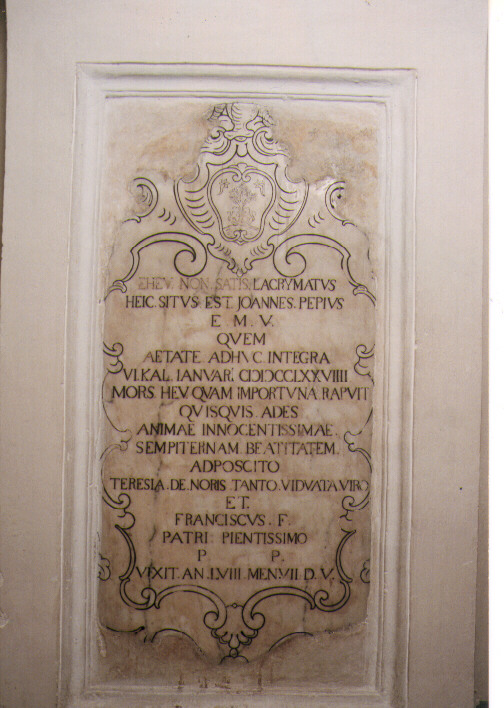 EHEV. NON. SATIS. LACRYMATVS
HEIC. SITVS. EST. JOANNES. PEPIVS
E. M. V.
QVEM
AETATE. ADHVC. INTEGRA
VI. KAL. IANVAR. CIƆIƆCCLXXVIIII
MORS. HEV QVAM IMPORTVNA. RAPVIT
QVISQVIS. ADES
ANIMAE INNOCENTISSIMAE
SEMPITERNAM. BEATITATEM.
ADPOSCITO
TERESIA. DE. NORIS. TANTO. VIDVATA. VIRO
ET.
FRANCISCVS. F.
PATRI PIENTISSIMO
P. P.
VIXIT. AN. LVIII MEN. VII. D. V.